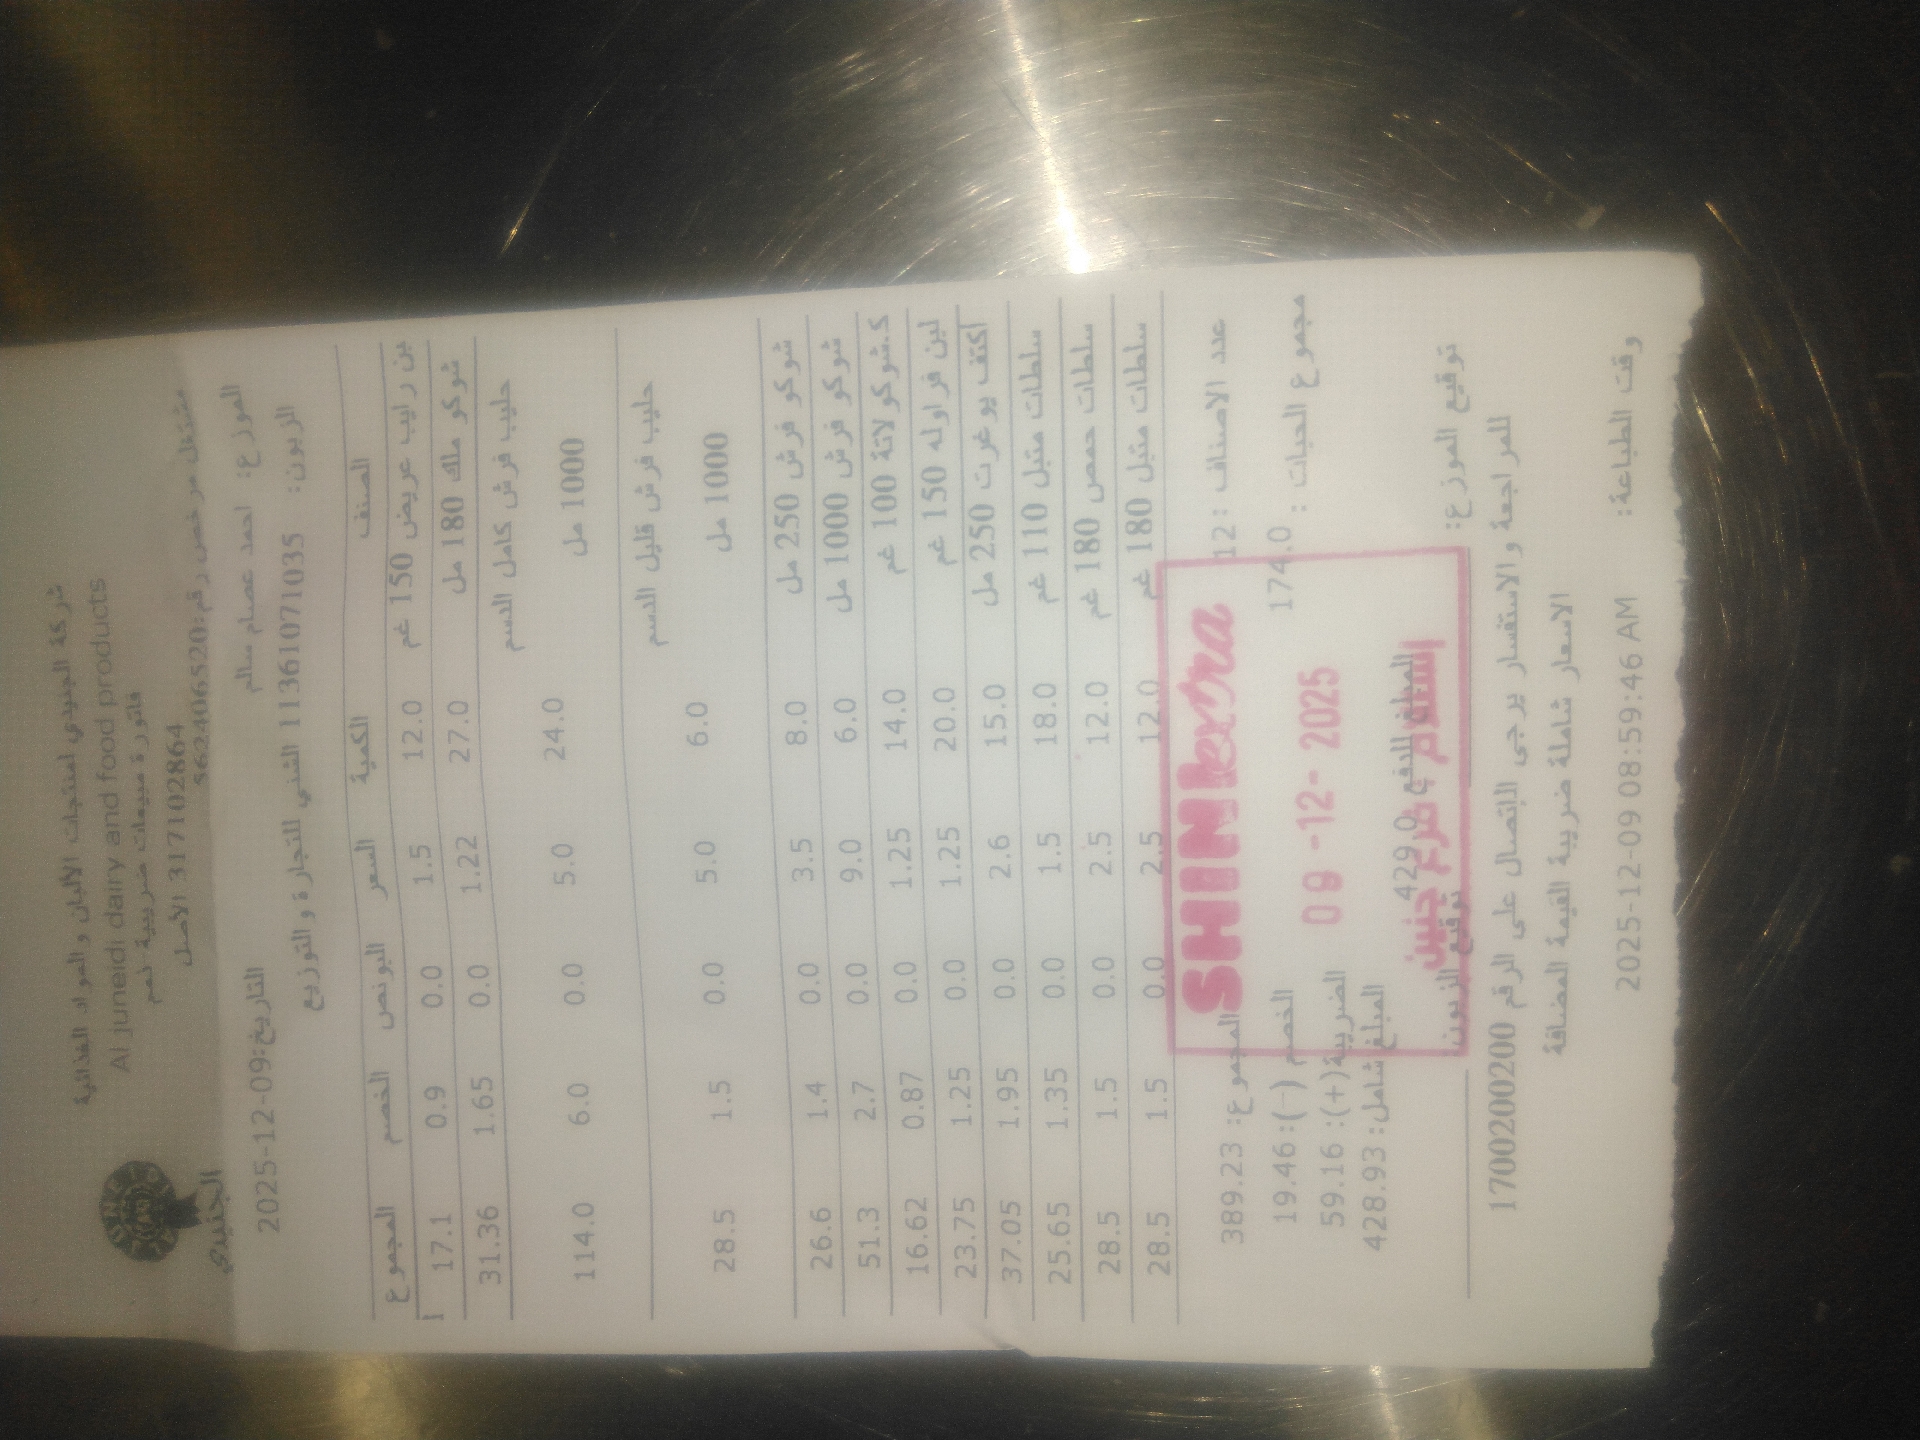 شركة الجنيدي لمنتجات الألبان والمواد الغذائية
Al juneidi dairy and food products
الجنيدي
فاتورة مبيعات ضريبية نسم
317102864 الأصل
مشتغل مرخص رقم:562406520
الموزع: احمد عصام سالم
التاريخ:2025-12-09
الزبون: 1136107103‎5 الشني للتجارة والتوزيع
الصنف الكمية السعر البونص الخصم المجموع
بن رايب عريض 150 غم 12.0 1.5 0.0 0.9 17.1
شوكو ملك 180 مل 27.0 1.22 0.0 1.65 31.36
حليب فرش كامل الدسم
1000 مل 24.0 5.0 0.0 6.0 114.0
حليب فرش قليل الدسم
1000 مل 6.0 5.0 0.0 1.5 28.5
شوكو فرش 250 مل 8.0 3.5 0.0 1.4 26.6
شوكو فرش 1000 مل 6.0 9.0 0.0 2.7 51.3
ك.شوكو لاتة 100 غم 14.0 1.25 0.0 0.87 16.62
لبن فراوله 150 غم 20.0 1.25 0.0 1.25 23.75
اكتف يوغرت 250 مل 15.0 2.6 0.0 1.95 37.05
سلطات متبل 110 غم 18.0 1.5 0.0 1.35 25.65
سلطات حمص 180 غم 12.0 2.5 0.0 1.5 28.5
سلطات متبل 180 غم 12.0 2.5 0.0 1.5 28.5
عدد الاصناف : 12 المجموع: 389.23
SHINI extra
مجموع الحبات : 174.0 الخصم (-): 19.46
09 -12- 2025
الضريبة(+): 59.16
المبلغ شامل: 428.93
المبلغ للدفع 429.0
فرع جنين
توقيع الموزع: توقيع الزبون:
للمراجعة والاستفسار يرجى الاتصال على الرقم 1700200200
الاسعار شاملة ضريبة القيمة المضافة
وقت الطباعة: 2025-12-09 08:59:46 AM